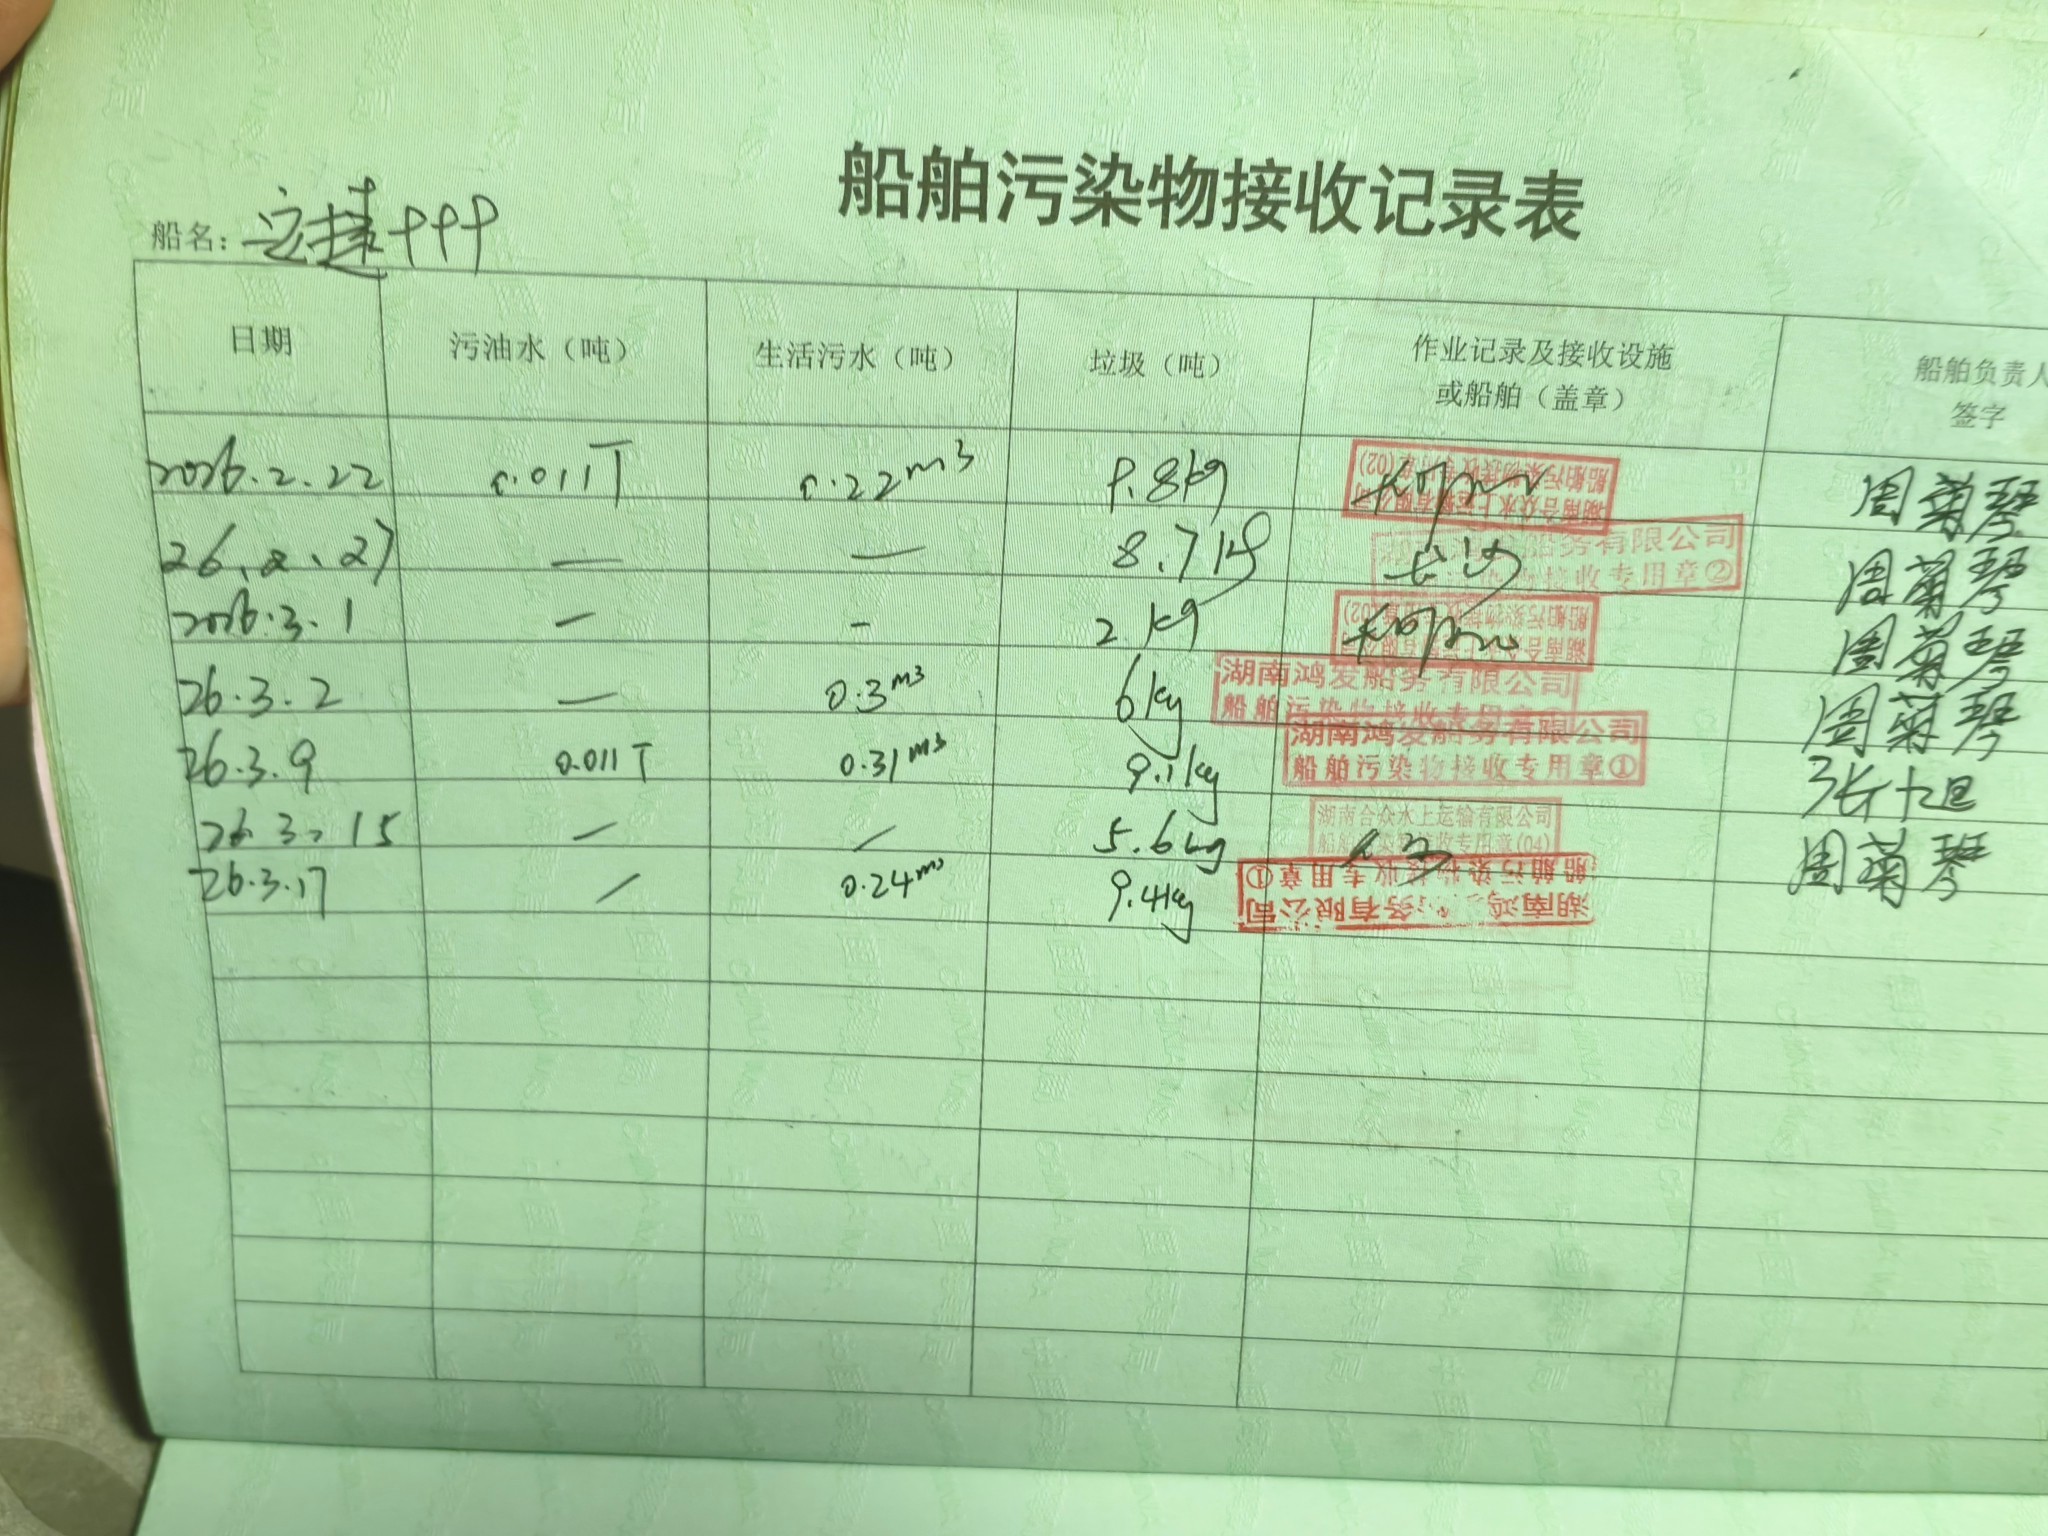 船舶污染物接收记录表
船名：
日期 污油水（吨） 生活污水（吨） 垃圾（吨） 作业记录及接收设施或船舶（盖章） 船舶负责人签字
2026.2.22 0.011T 0.22m³ 9.8kg 湖南合众水上运输有限公司 船舶污染物接收专用章(02) 周菊琴
26.2.27 — — 8.7kg 长沙 船务有限公司 染物接收专用章② 周菊琴
2026.3.1 — - 2kg 周菊琴
26.3.2 — 0.3m³ 6kg 湖南鸿发船务有限公司 船舶污染物接收专用章 周菊琴
26.3.9 0.011T 0.31m³ 9.1kg 湖南鸿发船务有限公司 船舶污染物接收专用章① 张
26.3.15 / / 5.6kg 湖南合众水上运输有限公司 船舶污染物接收专用章(04) 周菊琴
26.3.17 / 0.24m³ 9.4kg 湖南鸿 务有限公司 船舶污染物接收专用章①